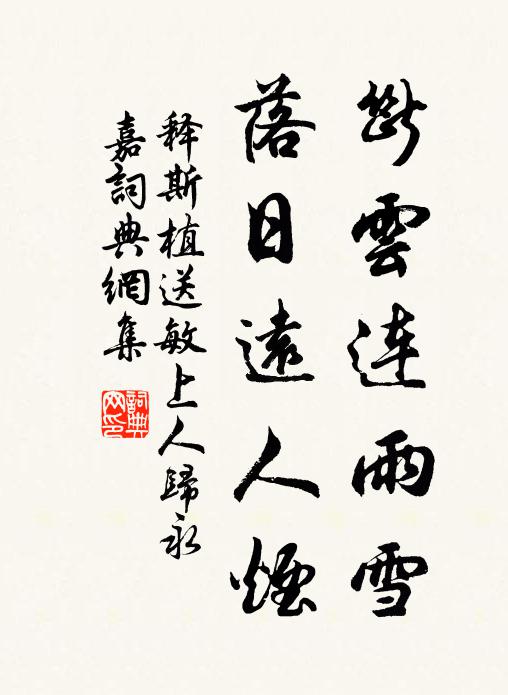 斷雲連雨雪
落日遠人煙
释斯植送敏上人歸永
嘉詞典網集
詞典网印